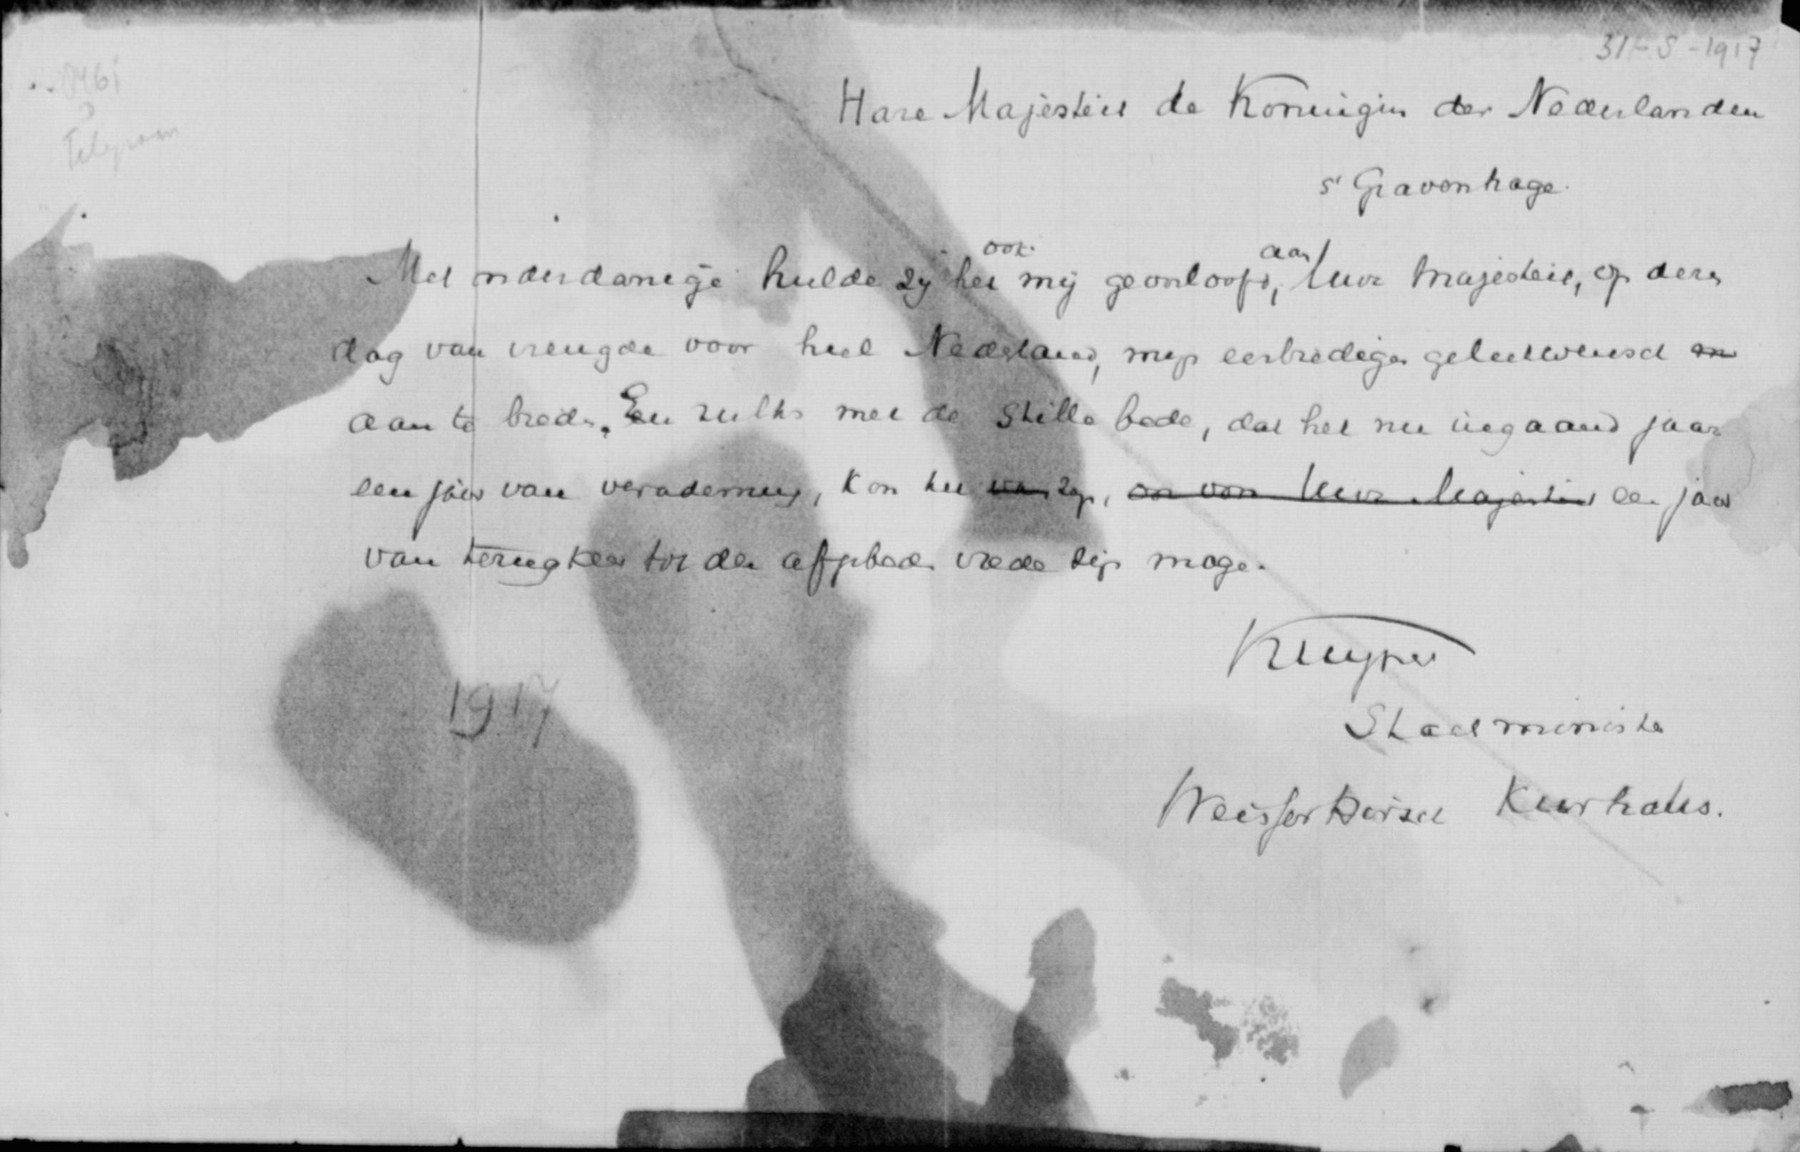 31-8-1917
Telegram
Hare Majesteit de Koningin der Nederlanden
s' Gravenhage.
Met onderdanige hulde zij het ook mij geoorloofd, aan Uwe Majesteit, op dezen
dag van vreugde voor heel Nederland, mijn eerbiedigen gelukwensch
aan te bieden. En zulks met de stille bede, dat het nu ingaand jaar
een jaar van verademing, kon het zijn, een jaar
van terugkeer tot den afgebeden vrede zijn moge.
Kuyper
Staatsminister
Weisser Hirsch Kurhaus.
1917